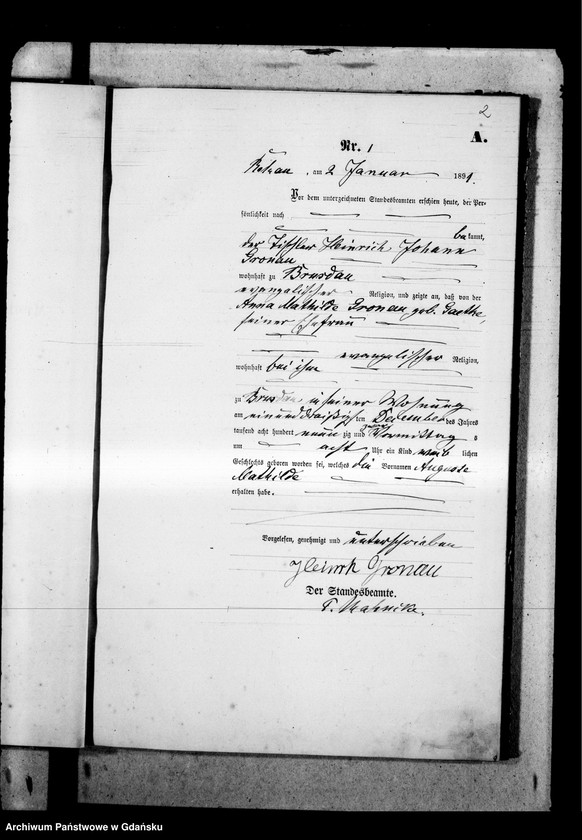 2
A.
Nr. 1
am 2 Januar 1891.
Vor dem unterzeichneten Standesbeamten erschien heute, der Per-
sönlichkeit nach
bekannt,
der Tischler Heinrich Johann
Gronau
wohnhaft zu Brusdau
evangelischer Religion, und zeigte an, daß von der
Anna Mathilde Gronau geb. Goethe,
seiner Ehefrau
evangelischer Religion,
wohnhaft bei ihm
zu Brusdau in seiner Wohnung
am einunddreißigsten December des Jahres
tausend acht hundert neunzig und Vormittag s
um acht Uhr ein Kind weiblichen
Geschlechts geboren worden sei, welches die Vornamen Auguste
Mathilde
erhalten habe.
Vorgelesen, genehmigt und unterschrieben
Heinrich Gronau
Der Standesbeamte.
Archiwum Państwowe w Gdańsku